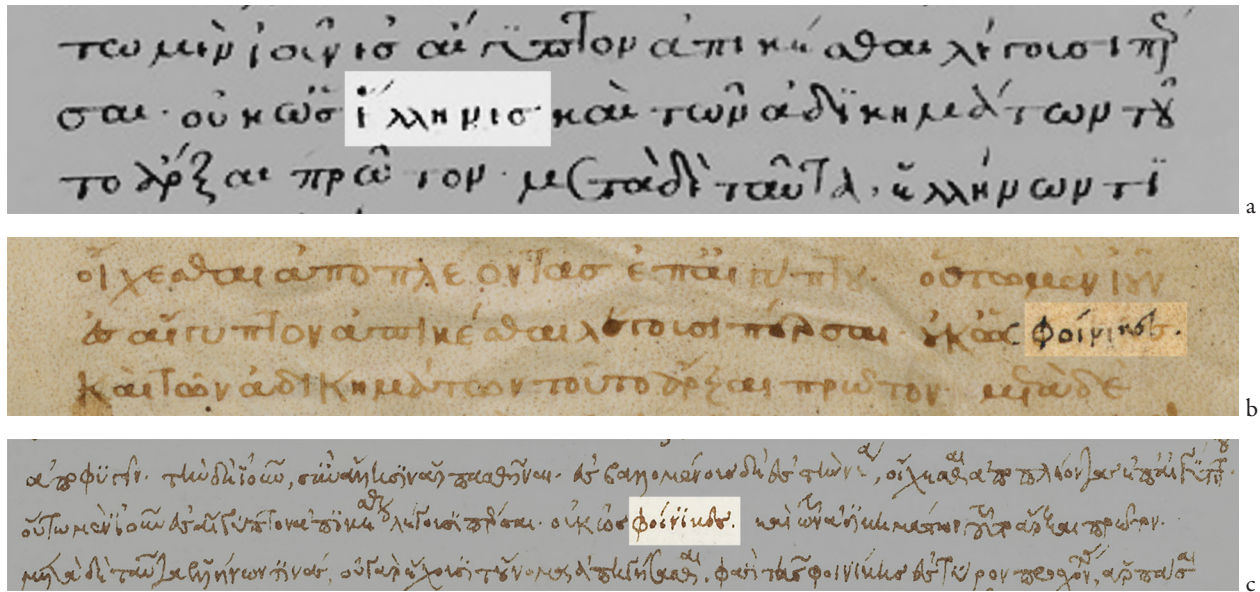 τω μὲν ἰοῦν ἐσ αἴγυπτον ἀπικέσθαι λέγουσι πέρ
σαι· οὐκ ὡσ ἕλληνεσ καὶ τῶν ἀδικημάτων τοῦ
το ἄρξαι πρῶτον· μετὰ δὲ ταῦτα· ἑλλήνων τι
a
οἴχεσθαι ἀποπλέοντασ ἐπ αἰγύπτου· οὕτω μὲν ἰοῦν
ἐσ αἴγυπτον ἀπικέσθαι λέγουσι πέρσαι· οὐκ ὡσ φοίνικεσ.
καὶ τῶν ἀδικημάτων τοῦτο ἄρξαι πρῶτον· μετὰ δὲ
b
τὴν δὲ ἰοῦν, σὺν ἄλλῃσιν ἁρπασθῆναι· ἐσβαλομένουσ δὲ ἐσ τὴν νέα, οἴχεσθαι ἀποπλέοντασ ἐπ αἰγύπτου·
οὕτω μὲν ἰοῦν ἐσ αἴγυπτον ἀπικέσθαι λέγουσι πέρσαι· οὐκ ὡσ φοίνικεσ. καὶ τῶν ἀδικημάτων ἄρξαι πρῶτον·
μετὰ δὲ ταῦτα ἑλλήνων τινάσ, οὐ γὰρ ἔχουσι τοὔνομα ἀπηγήσασθαι, φασὶ τῆσ φοινίκησ ἐσ τύρον προσχόντασ, ἁρπάσαι
c